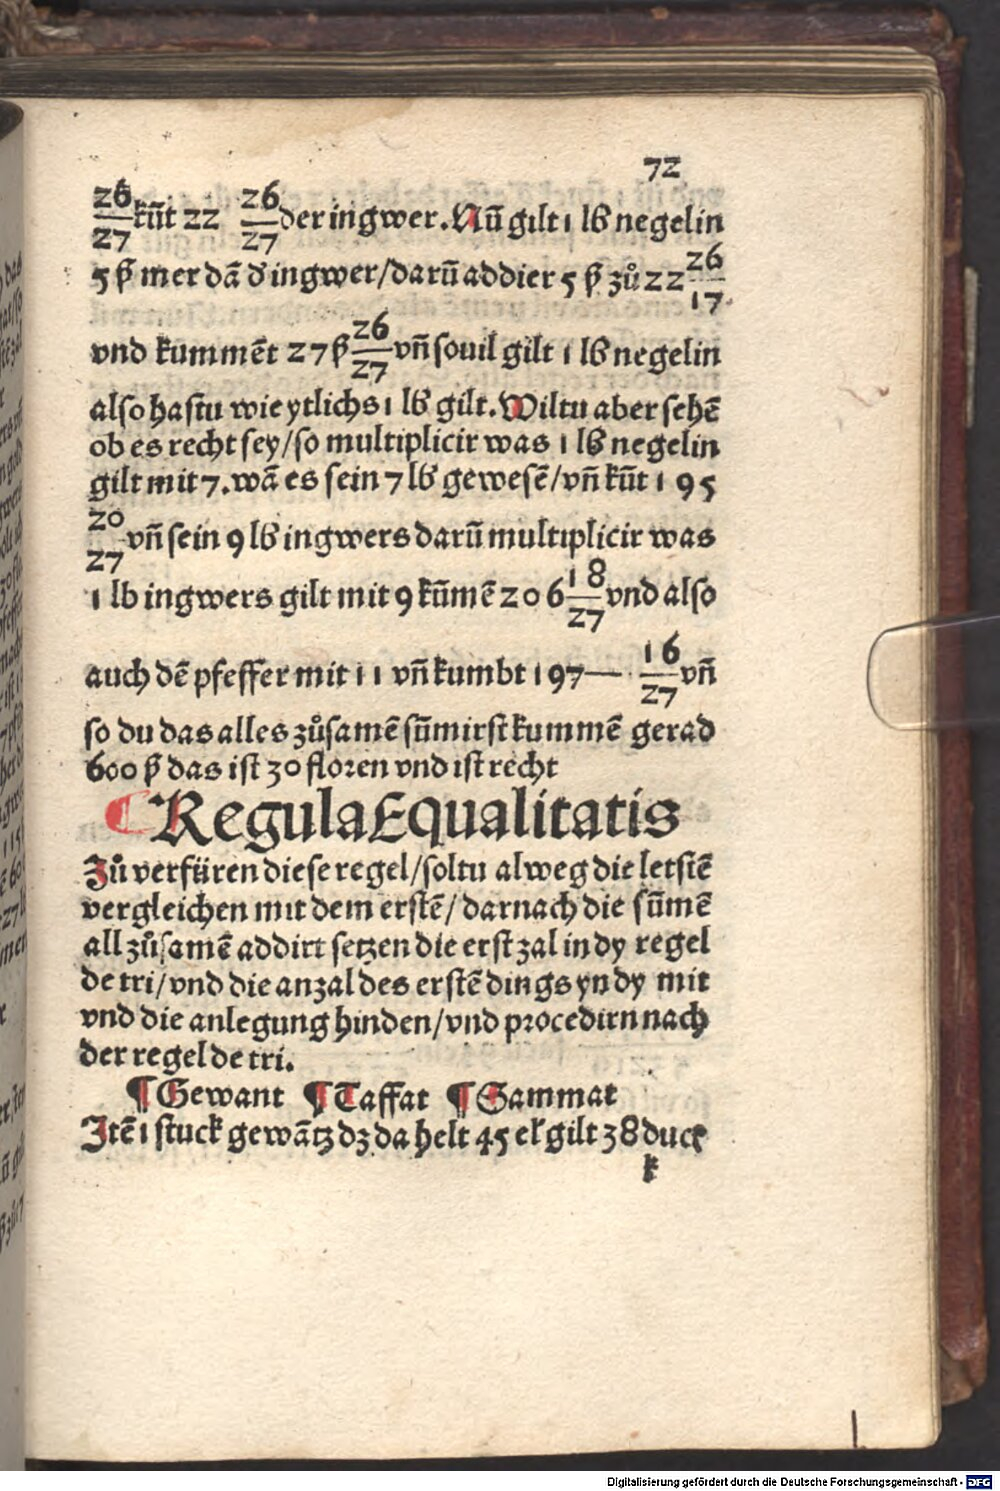 72
26/27 kūt 22 26/27 der ingwer. Nū gilt 1 lb negelin
5 ß mer dā d' ingwer/darū addier 5 ß zů 22 26/17.
vnd kummēt 27 ß 26/27 vn̄ souil gilt 1 lb negelin
also hastu wie ytlichs 1 lb gilt. Wiltu aber sehē
ob es recht sey/so multiplicir was 1 lb negelin
gilt mit 7. wā es sein 7 lb gewesē/vn̄ kūt 195
20/27 vn̄ sein 9 lb ingwers darū multiplicir was
1 lb ingwers gilt mit 9 kūmē 206 18/27 vnd also
auch dē pfeffer mit 11 vn̄ kumbt 197— 16/27 vn̄
so du das alles zůsamē sūmirst kummē gerad
600 ß das ist 30 floren vnd ist recht
¶ Regula Equalitatis
Zů verfüren diese regel/soltu alweg die letstē
vergleichen mit dem erstē/darnach die sūmē
all zůsamē addirt setzen die erst zal in dy regel
de tri/vnd die anzal des erstē dings yn dy mit
vnd die anlegung hinden/vnd procedirn nach
der regel de tri.
¶ Gewant ¶ Taffat ¶ Sammat
Jtē 1 stuck gewātz dz da helt 45 el' gilt 38 duct
k
Digitalisierung gefördert durch die Deutsche Forschungsgemeinschaft - DFG